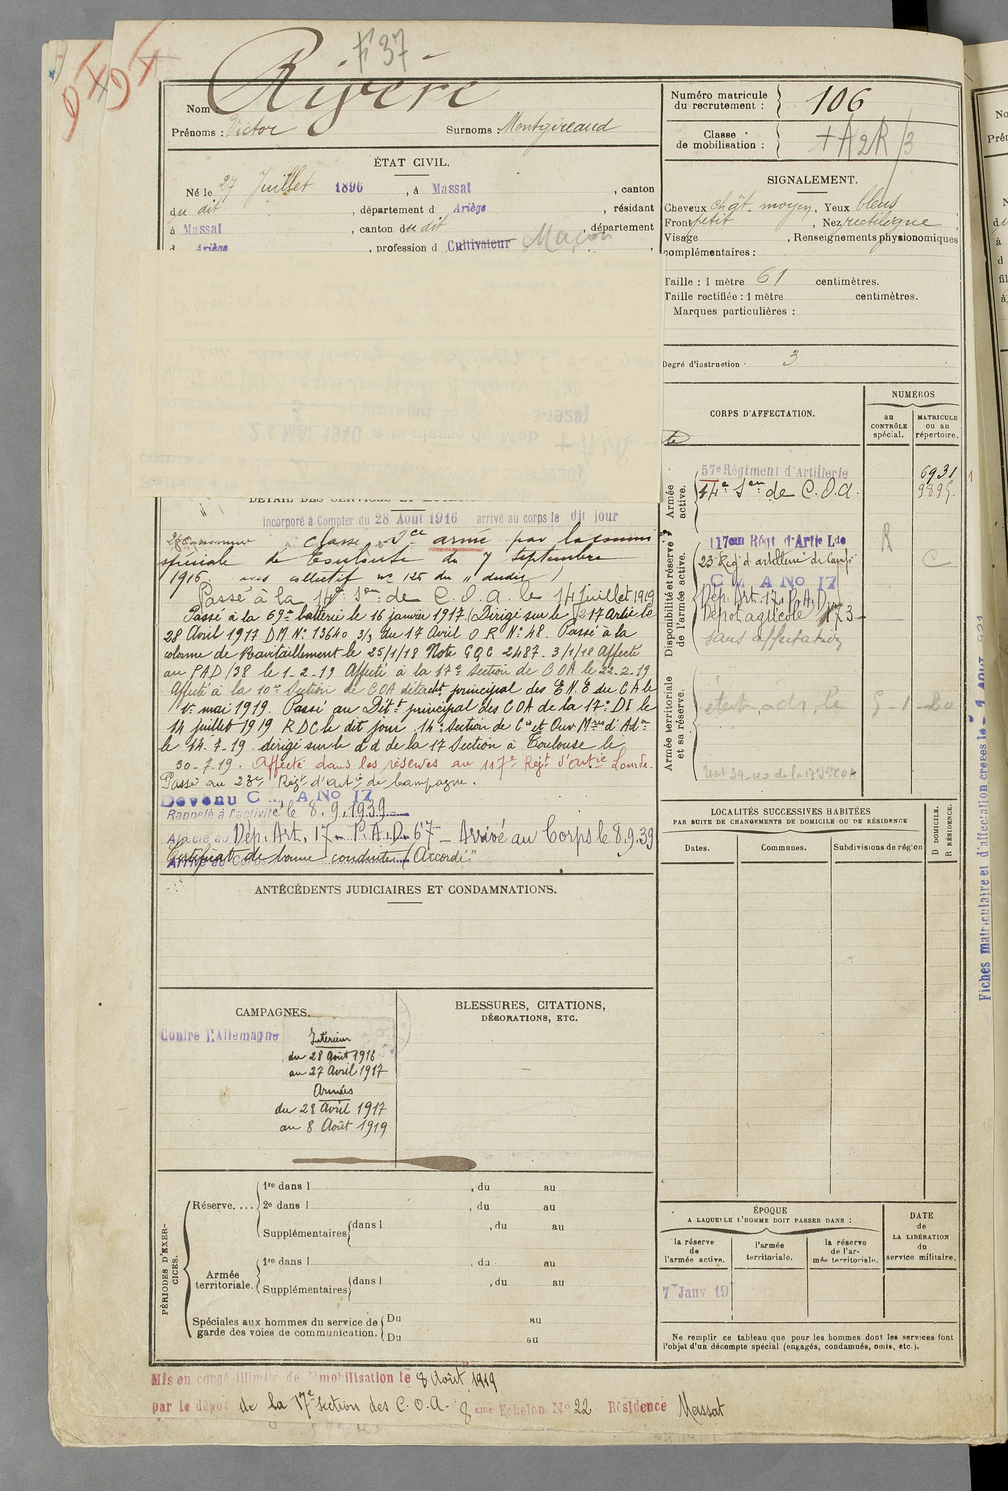 F 37
Nom : Rivère
Prénoms : Victor Surnoms : Montgireaud
Numéro matricule du recrutement : 106
Classe de mobilisation : + A2R/3
ÉTAT CIVIL.
Né le 27 Juillet 1896, à Massat, canton
du dit, département d Ariège, résidant
à Massat, canton du dit, département
d Ariège, profession d Cultivateur Maçon
SIGNALEMENT.
Cheveux chât. moyen, Yeux bleus
Front petit, Nez rectiligne
Visage , Renseignements physionomiques
complémentaires :
Taille : 1 mètre 61 centimètres.
Taille rectifiée : 1 mètre centimètres.
Marques particulières :
Degré d'instruction 3
CORPS D'AFFECTATION.
NUMÉROS
au CONTRÔLE spécial.
MATRICULE ou au répertoire.
Armée active.
57e Régiment d'Artillerie 6931
14e Son de C.O.A. 9895
Disponibilité et réserve de l'armée active.
117eme Régt d'Artie Lde R
23e Reg d'artillerie de Camp C
C M A No 17
Dép. Art. 17 P.A.D.
Dépot agricole 173
Sans affectation
Armée territoriale et sa réserve.
DÉTAIL DES SERVICES ET
Incorporé à Compter du 28 Aout 1916 arrivé au corps le dit jour
classé Sce armé par la comm
spéciale de Toulouse du 7 septembre
1916. avis collectif no 125 du " dudit )
Passé à la 14e Son de C.O.A. le 14 juillet 1919
Passé à la 69e batterie le 16 janvier 1917. Dirigé sur le 217 Artie le
28 Avril 1917 DM No 13640 3/3 du 17 Avril O R No 48. Passé à la
colonne de Ravitaillement le 25/1/18 Note GQG 2487 3/1/18 Affecté
au PAD/38 le 1-2-19 Affecté à la 17e Section de COA le 22-2-19
Affecté à la 10e Section de COA détacht principal des E.N.E du CA le
1er mai 1919. Passé au Détt principal des COA de la 17e DI le
14 juillet 1919 RDC le dit jour 14e Section de Cis et Ouv Mres d'Adon
le 14.7.19. dirigé sur le d d de la 17 Section à Toulouse le
30-7-19. Affecté dans les réserves au 117e Regt d'Artie Lourde.
Passé au 23e Régt d'artie de Campagne.
Devenu C M A No 17
Rappelé à l'activité le 8.9.1939
Affecté au Dép. Art. 17 P.A.D. 67 Arrivé au Corps le 8.9.39
Arrivé au Corps
Certificat de bonne conduite "Accordé"
ANTÉCÉDENTS JUDICIAIRES ET CONDAMNATIONS.
LOCALITÉS SUCCESSIVES HABITÉES
PAR SUITE DE CHANGEMENTS DE DOMICILE OU DE RÉSIDENCE
Dates. Communes. Subdivisions de région D DOMICILE. R RÉSIDENCE.
CAMPAGNES.
Contre l'Allemagne
Intérieur
du 28 Août 1916
au 27 Avril 1917
Armées
du 28 Avril 1917
au 8 Août 1919
BLESSURES, CITATIONS,
DÉCORATIONS, ETC.
PÉRIODES D'EXERCICES.
Réserve. ...
1re dans l , du au
2e dans l , du au
Supplémentaires dans l , du au
Armée territoriale.
1re dans l , du au
Supplémentaires dans l , du au
Spéciales aux hommes du service de garde des voies de communication.
Du au
Du au
ÉPOQUE
A LAQUELLE L'HOMME DOIT PASSER DANS :
la réserve de l'armée active.
l'armée territoriale.
la réserve de l'armée territoriale.
DATE de LA LIBÉRATION du service militaire.
7 Janv 19
Ne remplir ce tableau que pour les hommes dont les services font
l'objet d'un décompte spécial (engagés, condamnés, omis, etc.).
Mis en congé illimité de démobilisation le 8 Août 1919
par le dépot de la 17e Section des C.O.A. 8 eme Echelon No 22 Résidence Massat
Fiches matriculaire et d'affectation créées le